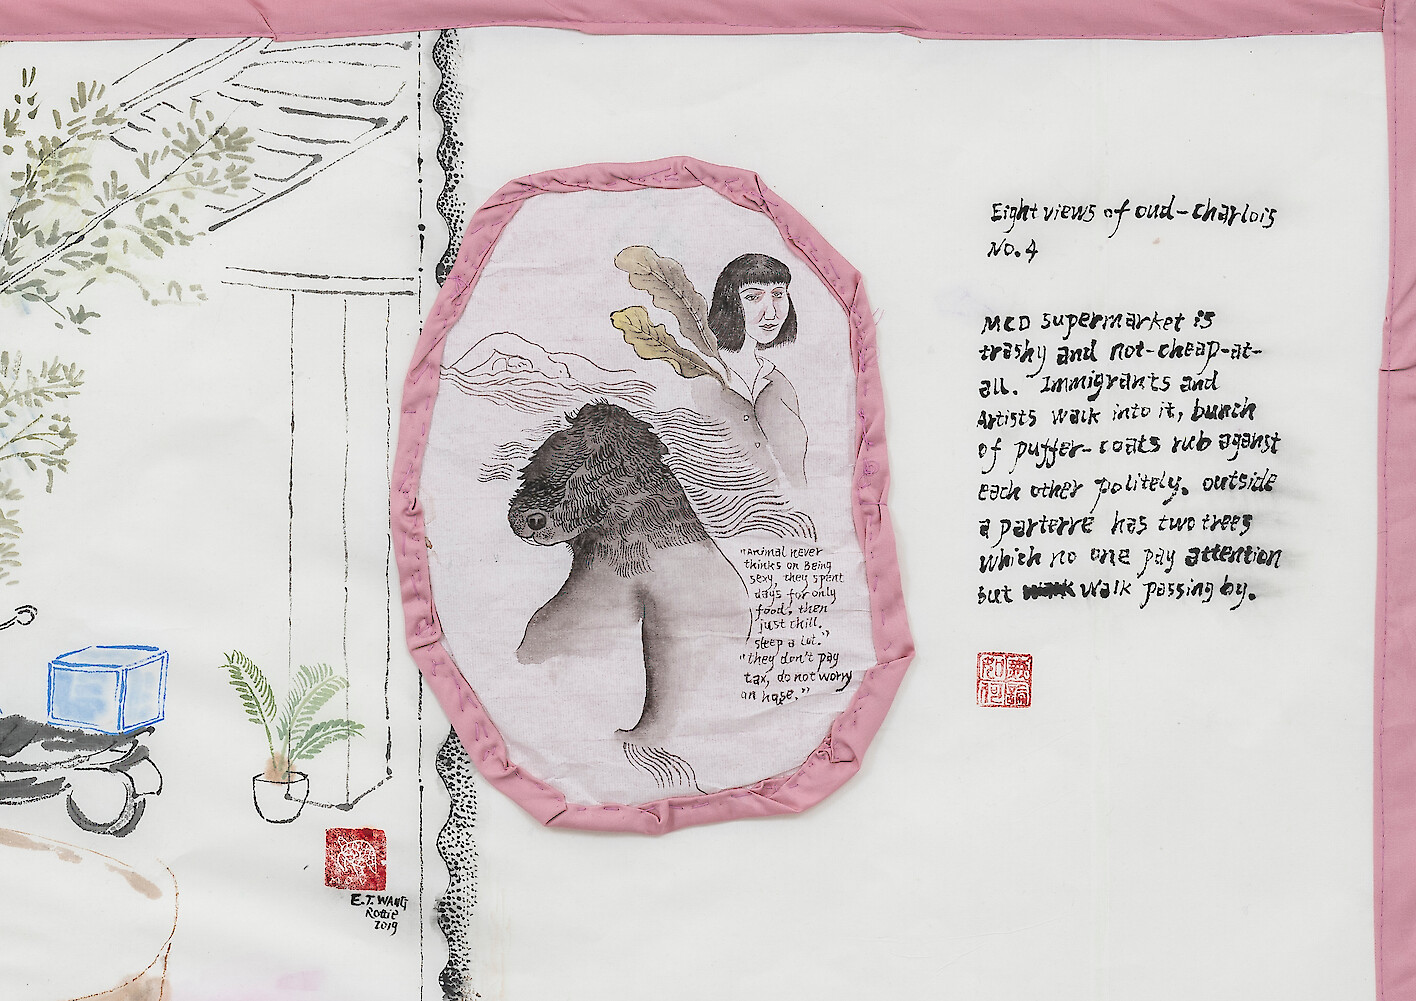 Eight views of oud-charlois
No.4
MCD supermarket is
trashy and not-cheap-at-
all. Immigrants and
Artists walk into it, bunch
of puffer-coats rub aganst
each other politely. outside
a parterre has two trees
which no one pay attention
but walk passing by.
"Animal never
thinks on Being
sexy, they spent
days for only
food, then
just chill.
sleep a lot."
"they don't pay
tax, do not worry
on hage."
E.T. WANG
Rottie
2019